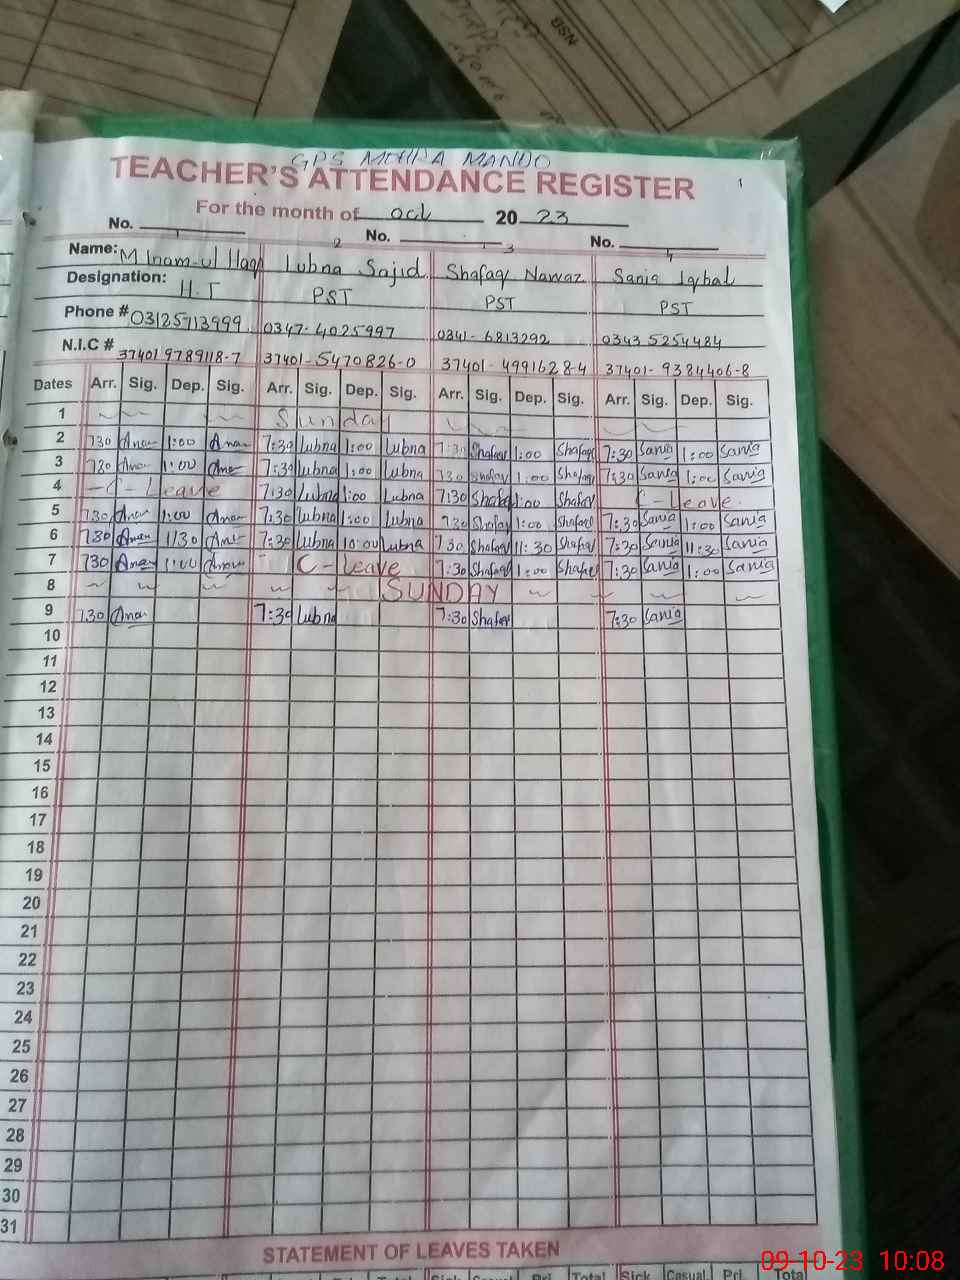 NSB
GPS MOHRA MANDO
TEACHER'S ATTENDANCE REGISTER 1
For the month of Oct 2023
No. 1 2 No. 3 No. 4
Name: M Inam-ul Haq Lubna Sajid Shafaq Nawaz Sania Iqbal
Designation: H.T PST PST PST
Phone # 03125713999 0347-4025997 0341-6813292 0343 5254484
N.I.C # 37401 9789118-7 37401-5470826-0 37401-4991628-4 37401-9384406-8
Dates Arr. Sig. Dep. Sig. Arr. Sig. Dep. Sig. Arr. Sig. Dep. Sig. Arr. Sig. Dep. Sig.
1 Sunday
2 730 1:00 7:30 Lubna 1:00 Lubna 7:30 Shafaq 1:00 Shafaq 7:30 Sania 1:00 Sania
3 730 1:00 7:30 Lubna 1:00 Lubna 730 Shafaq 1:00 Shafaq 7:30 Sania 1:00 Sania
4 -C-Leave 7:30 Lubna 1:00 Lubna 7:30 Shafaq 1:00 Shafaq C-Leave.
5 730 1:00 7:30 Lubna 1:00 Lubna 730 Shafaq 1:00 Shafaq 7:30 Sania 1:00 Sania
6 730 1130 7:30 Lubna 10:00 Lubna 730 Shafaq 11:30 Shafaq 7:30 Sania 11:30 Sania
7 730 1:00 C-Leave 7:30 Shafaq 1:00 Shafaq 7:30 Sania 1:00 Sania
8 SUNDAY
9 730 7:30 Lubna 7:30 Shafaq 7:30 Sania
10
11
12
13
14
15
16
17
18
19
20
21
22
23
24
25
26
27
28
29
30
31
STATEMENT OF LEAVES TAKEN
Total Sick Casual Pri. Total Sick Casual Pri. Total
09-10-23 10:08